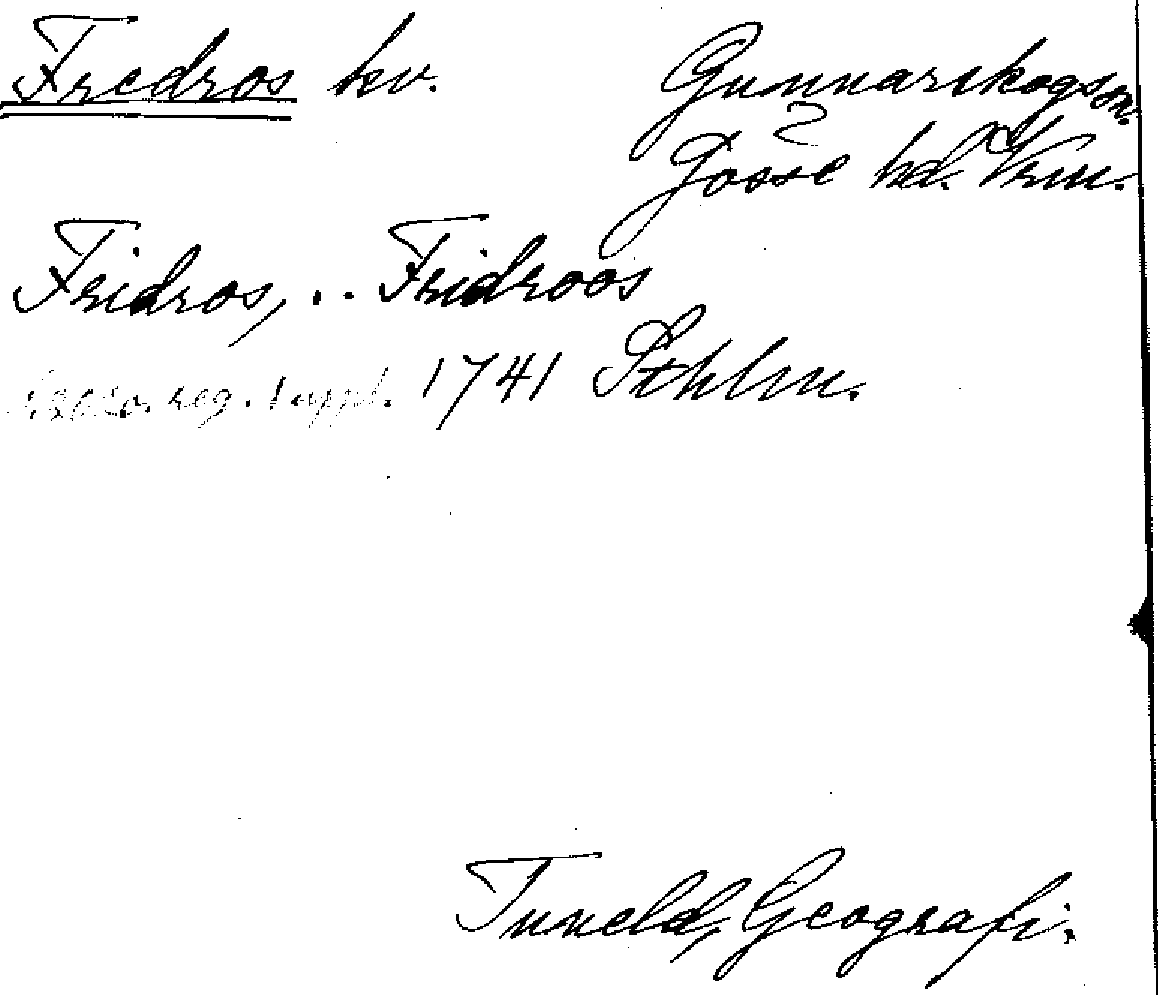 Fredros kv. Gunnarskogs sn.
Gosse hd. Vrm.
Fridros, .. Fridroos
reg. suppl. 1741 Sthlm.
Tuneld, Geografi.